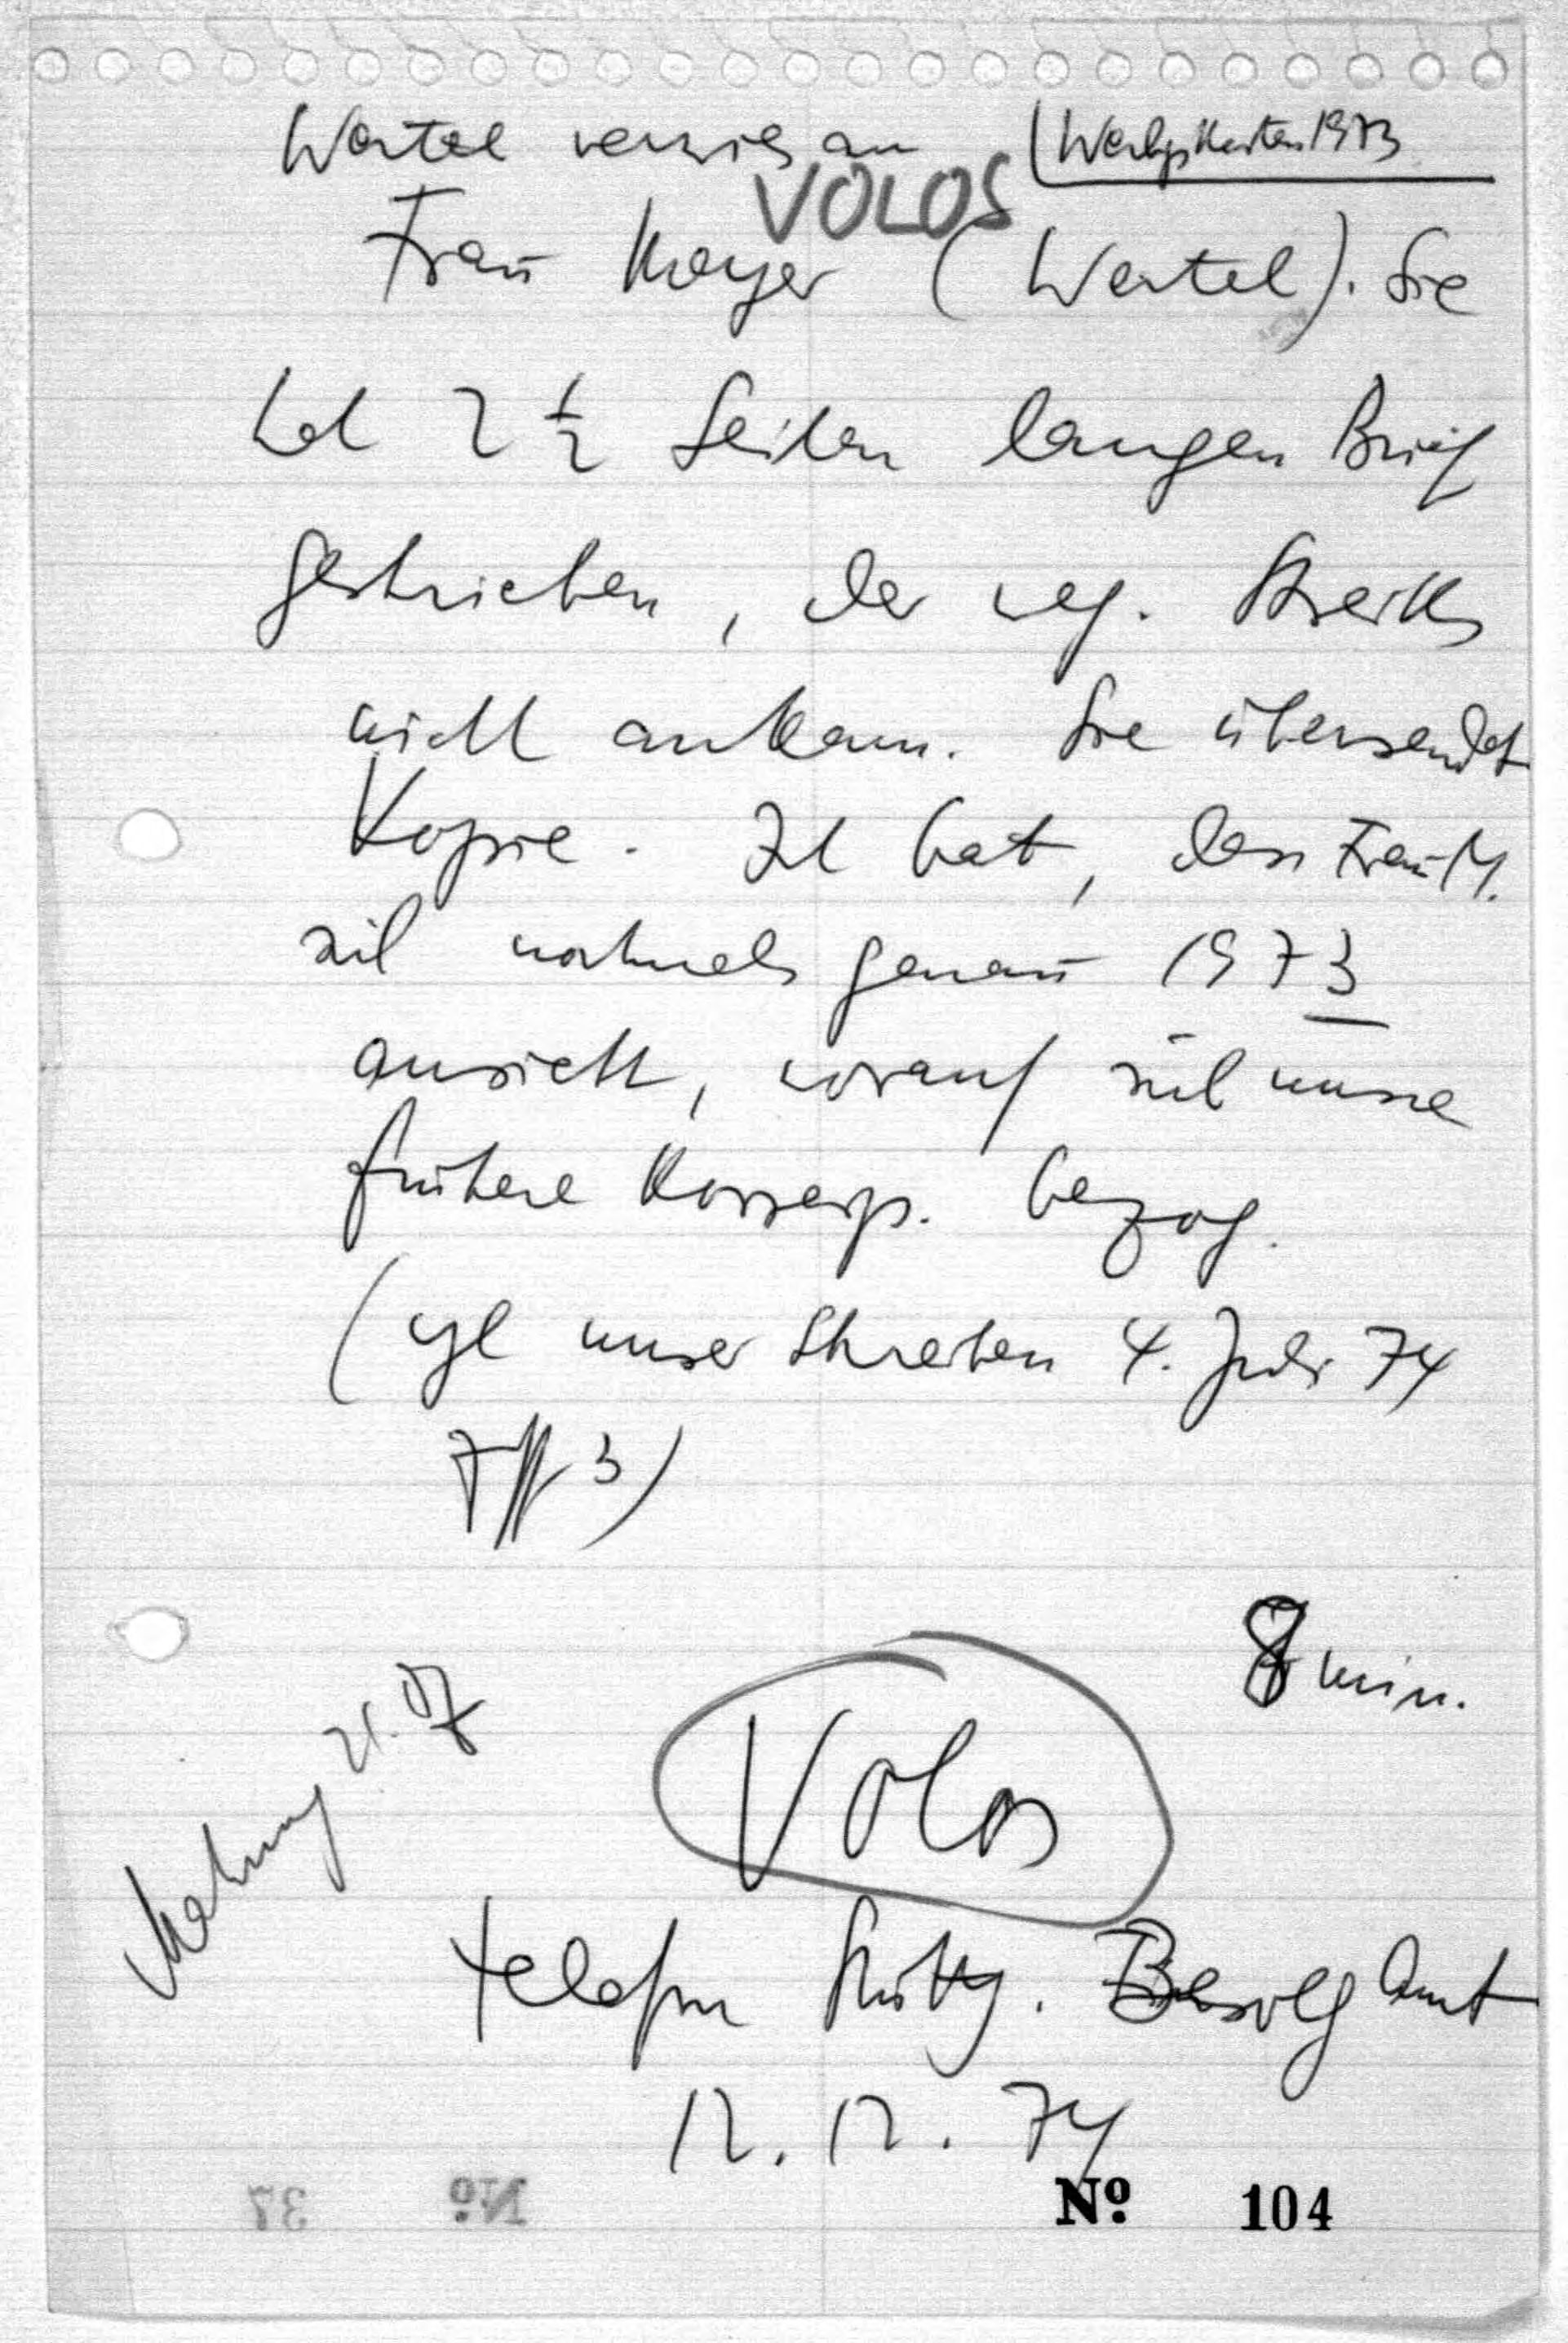 Wertel verwies an
Werbgskosten 1973
VOLOS
Frau Mayer (Wertel). Sie
hat 2 ½ Seiten langen Brief
geschrieben, der weg. Streiks
nicht ankam. Sie übersendet
Kopie. Ich bat, dass Frau M.
sich nochmals genau 1973
ansieht, worauf sich unsre
frühere Korresp. bezog.
(vgl unser Schreiben 4. Juli 74
3)
8 min.
Mahnung 21.07
Volos
telefon Stuttg. Besoldg Amt
12.12.74
Nº 104
Nº 37